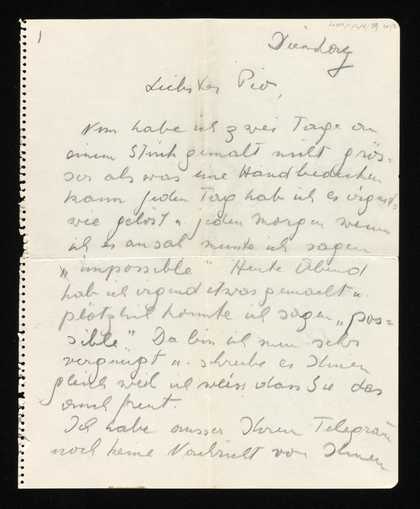 1
Dienstag
Liebster Pio,
Nun habe ich zwei Tage an
einem Stück gemalt nicht grös=
ser als was eine Hand bedecken
kann jeden Tag hab ich es irgend=
wie gelöst u. jeden Morgen wenn
ich es ansah musste ich sagen
„impossible" Heute Abend
hab ich irgend etwas gemacht u.
plötzlich konnte ich sagen „pos=
sible". Da bin ich nun sehr
vergnügt u. schreibe es Ihnen
gleich weil ich weiss dass Sie das
auch freut.
Ich habe ausser Ihrem Telegram
noch keine Nachricht von Ihnen